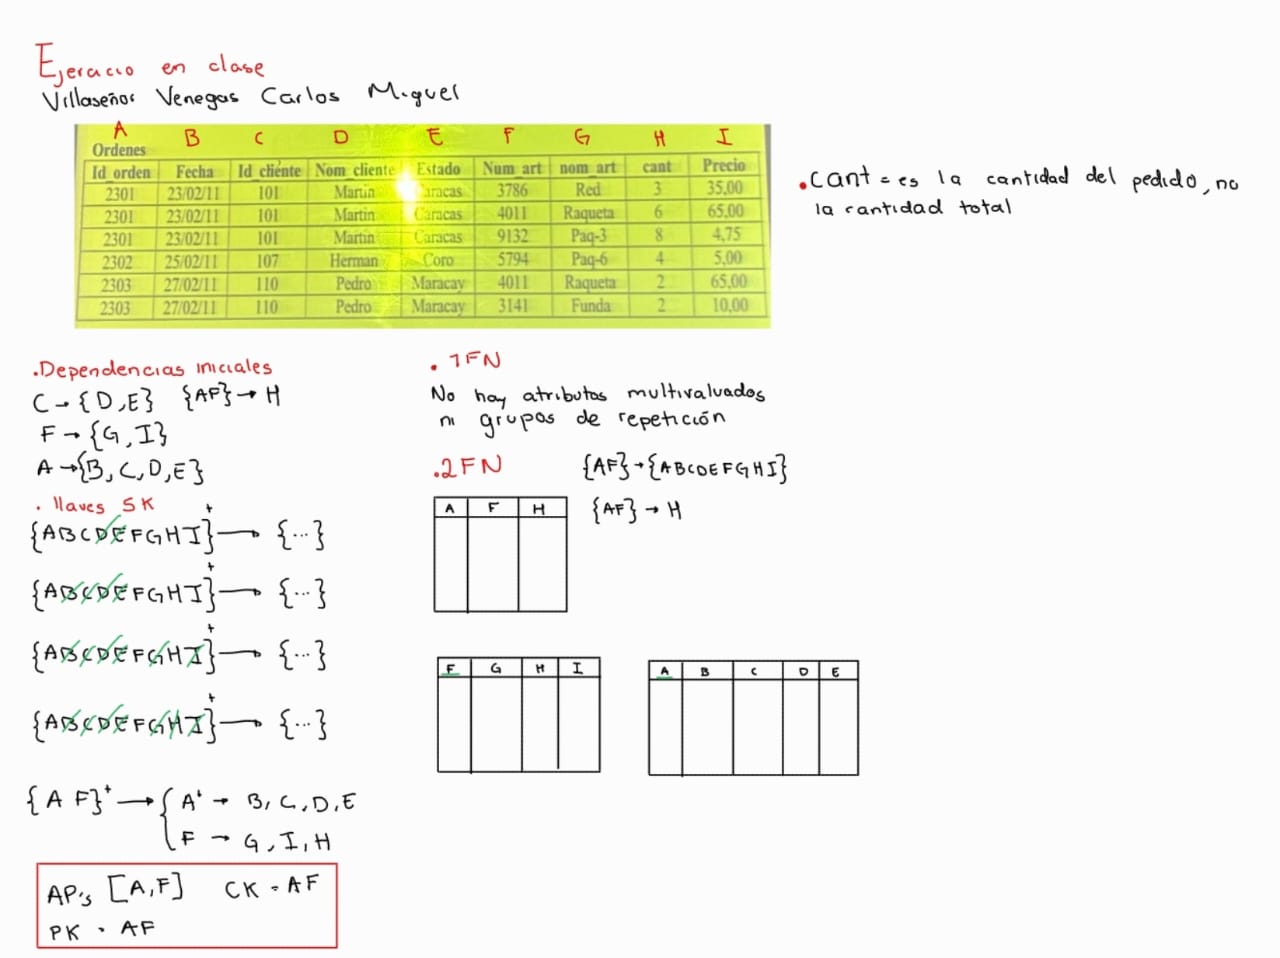 Ejercicio en clase
Villaseñor Venegas Carlos Miguel
A B C D E F G H I
Ordenes
Id_orden Fecha Id_cliente Nom_cliente Estado Num_art nom_art cant Precio
2301 23/02/11 101 Martin Caracas 3786 Red 3 35,00
2301 23/02/11 101 Martin Caracas 4011 Raqueta 6 65,00
2301 23/02/11 101 Martin Caracas 9132 Paq-3 8 4,75
2302 25/02/11 107 Herman Coro 5794 Paq-6 4 5,00
2303 27/02/11 110 Pedro Maracay 4011 Raqueta 2 65,00
2303 27/02/11 110 Pedro Maracay 3141 Funda 2 10,00
.cant = es la cantidad del pedido, no
la cantidad total
.Dependencias iniciales
C → {D,E} {AF} → H
F → {G, I}
A → {B, C, D, E}
. llaves SK
{ABCDEFGHI}+ → {...}
{ABCDEFGHI}+ → {...}
{ABCDEFGHI}+ → {...}
{ABCDEFGHI}+ → {...}
{A F}+ → { A+ → B, C, D, E
F → G, I, H
AP's [A,F] CK = AF
PK = AF
. 1FN
No hay atributos multivaluados
ni grupos de repetición
.2FN {AF} → {ABCDEFGHI}
A F H {AF} → H
F G H I
A B C D E